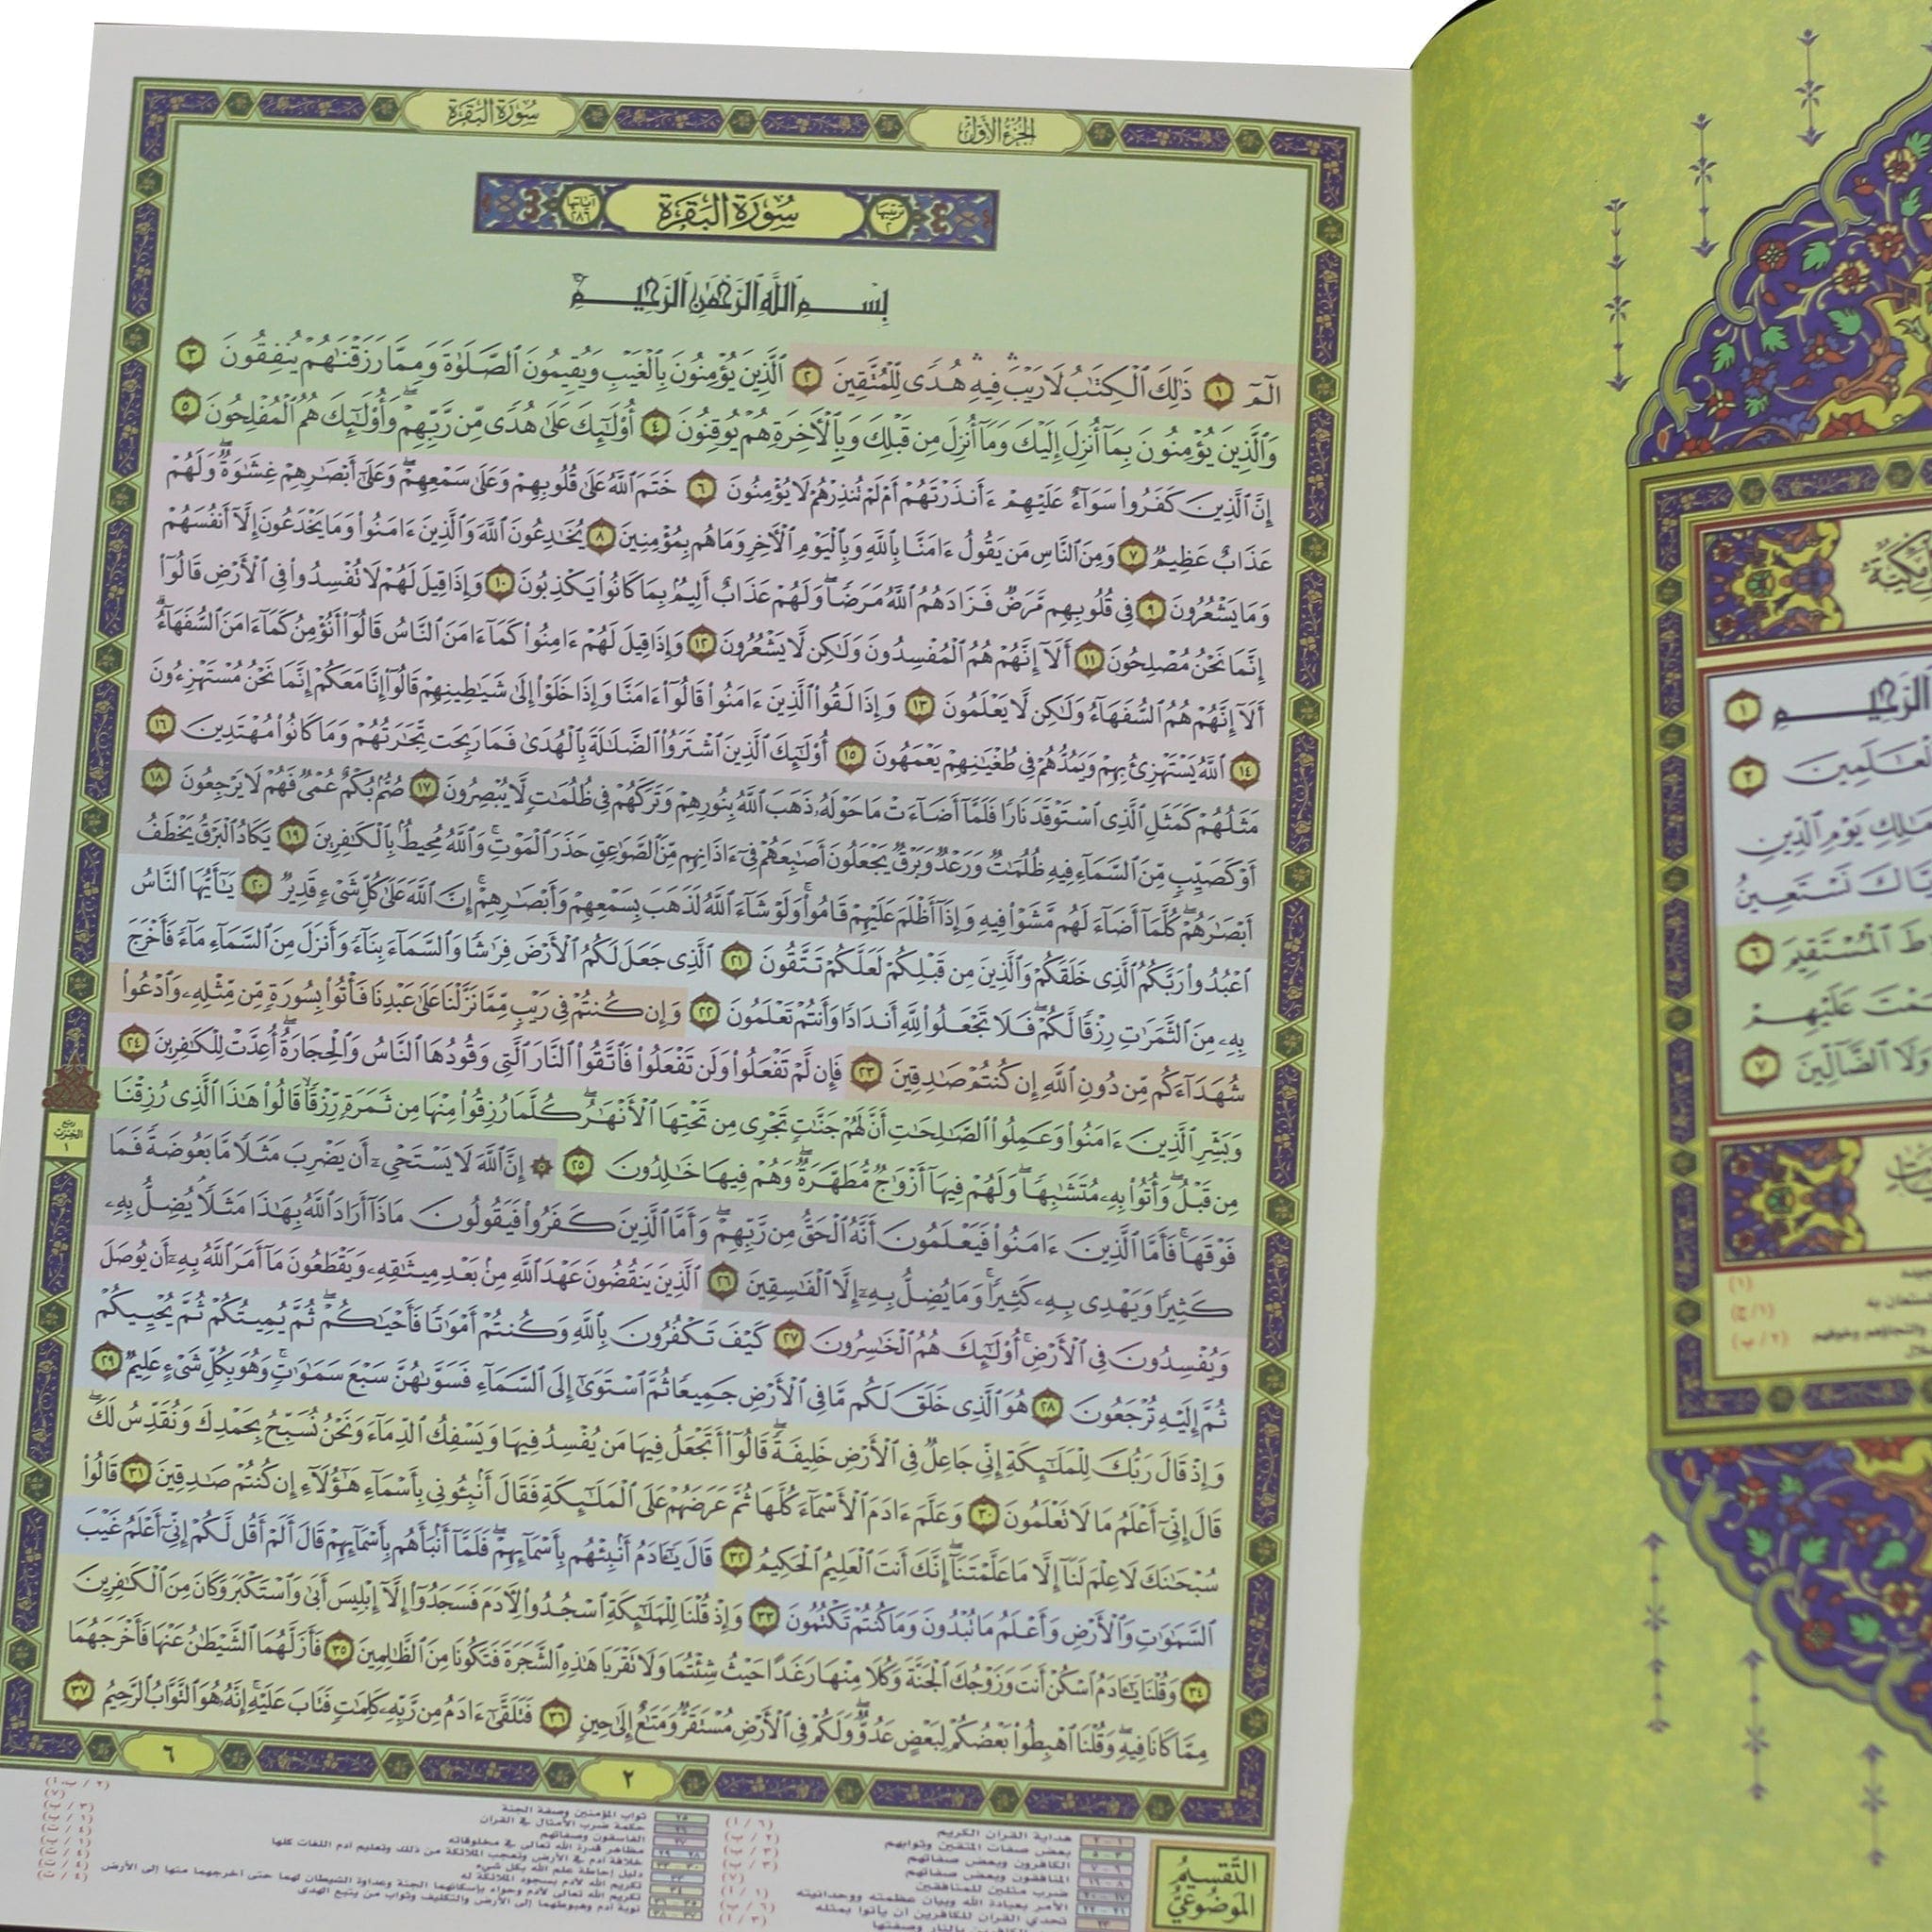 الجزء الأول
سورة البقرة
ترتيبها ٢
سورة البقرة
آياتها ٢٨٦
بِسْمِ ٱللَّهِ ٱلرَّحْمَٰنِ ٱلرَّحِيمِ
الٓمٓ ١ ذَٰلِكَ ٱلْكِتَٰبُ لَا رَيْبَ ۛ فِيهِ ۛ هُدًى لِّلْمُتَّقِينَ ٢ ٱلَّذِينَ يُؤْمِنُونَ بِٱلْغَيْبِ وَيُقِيمُونَ ٱلصَّلَوٰةَ وَمِمَّا رَزَقْنَٰهُمْ يُنفِقُونَ ٣
وَٱلَّذِينَ يُؤْمِنُونَ بِمَآ أُنزِلَ إِلَيْكَ وَمَآ أُنزِلَ مِن قَبْلِكَ وَبِٱلْءَاخِرَةِ هُمْ يُوقِنُونَ ٤ أُو۟لَٰٓئِكَ عَلَىٰ هُدًى مِّن رَّبِّهِمْ ۖ وَأُو۟لَٰٓئِكَ هُمُ ٱلْمُفْلِحُونَ ٥
إِنَّ ٱلَّذِينَ كَفَرُوا۟ سَوَآءٌ عَلَيْهِمْ ءَأَنذَرْتَهُمْ أَمْ لَمْ تُنذِرْهُمْ لَا يُؤْمِنُونَ ٦ خَتَمَ ٱللَّهُ عَلَىٰ قُلُوبِهِمْ وَعَلَىٰ سَمْعِهِمْ ۖ وَعَلَىٰٓ أَبْصَٰرِهِمْ غِشَٰوَةٌ ۖ وَلَهُمْ
عَذَابٌ عَظِيمٌ ٧ وَمِنَ ٱلنَّاسِ مَن يَقُولُ ءَامَنَّا بِٱللَّهِ وَبِٱلْيَوْمِ ٱلْءَاخِرِ وَمَا هُم بِمُؤْمِنِينَ ٨ يُخَٰدِعُونَ ٱللَّهَ وَٱلَّذِينَ ءَامَنُوا۟ وَمَا يَخْدَعُونَ إِلَّآ أَنفُسَهُمْ
وَمَا يَشْعُرُونَ ٩ فِى قُلُوبِهِم مَّرَضٌ فَزَادَهُمُ ٱللَّهُ مَرَضًا ۖ وَلَهُمْ عَذَابٌ أَلِيمٌۢ بِمَا كَانُوا۟ يَكْذِبُونَ ١٠ وَإِذَا قِيلَ لَهُمْ لَا تُفْسِدُوا۟ فِى ٱلْأَرْضِ قَالُوٓا۟
إِنَّمَا نَحْنُ مُصْلِحُونَ ١١ أَلَآ إِنَّهُمْ هُمُ ٱلْمُفْسِدُونَ وَلَٰكِن لَّا يَشْعُرُونَ ١٢ وَإِذَا قِيلَ لَهُمْ ءَامِنُوا۟ كَمَآ ءَامَنَ ٱلنَّاسُ قَالُوٓا۟ أَنُؤْمِنُ كَمَآ ءَامَنَ ٱلسُّفَهَآءُ ۗ
أَلَآ إِنَّهُمْ هُمُ ٱلسُّفَهَآءُ وَلَٰكِن لَّا يَعْلَمُونَ ١٣ وَإِذَا لَقُوا۟ ٱلَّذِينَ ءَامَنُوا۟ قَالُوٓا۟ ءَامَنَّا وَإِذَا خَلَوْا۟ إِلَىٰ شَيَٰطِينِهِمْ قَالُوٓا۟ إِنَّا مَعَكُمْ إِنَّمَا نَحْنُ مُسْتَهْزِءُونَ
١٤ ٱللَّهُ يَسْتَهْزِئُ بِهِمْ وَيَمُدُّهُمْ فِى طُغْيَٰنِهِمْ يَعْمَهُونَ ١٥ أُو۟لَٰٓئِكَ ٱلَّذِينَ ٱشْتَرَوُا۟ ٱلضَّلَٰلَةَ بِٱلْهُدَىٰ فَمَا رَبِحَت تِّجَٰرَتُهُمْ وَمَا كَانُوا۟ مُهْتَدِينَ ١٦
مَثَلُهُمْ كَمَثَلِ ٱلَّذِى ٱسْتَوْقَدَ نَارًا فَلَمَّآ أَضَآءَتْ مَا حَوْلَهُۥ ذَهَبَ ٱللَّهُ بِنُورِهِمْ وَتَرَكَهُمْ فِى ظُلُمَٰتٍ لَّا يُبْصِرُونَ ١٧ صُمٌّۢ بُكْمٌ عُمْىٌ فَهُمْ لَا يَرْجِعُونَ ١٨
أَوْ كَصَيِّبٍ مِّنَ ٱلسَّمَآءِ فِيهِ ظُلُمَٰتٌ وَرَعْدٌ وَبَرْقٌ يَجْعَلُونَ أَصَٰبِعَهُمْ فِىٓ ءَاذَانِهِم مِّنَ ٱلصَّوَٰعِقِ حَذَرَ ٱلْمَوْتِ ۚ وَٱللَّهُ مُحِيطٌۢ بِٱلْكَٰفِرِينَ ١٩ يَكَادُ ٱلْبَرْقُ يَخْطَفُ
أَبْصَٰرَهُمْ ۖ كُلَّمَآ أَضَآءَ لَهُم مَّشَوْا۟ فِيهِ وَإِذَآ أَظْلَمَ عَلَيْهِمْ قَامُوا۟ ۚ وَلَوْ شَآءَ ٱللَّهُ لَذَهَبَ بِسَمْعِهِمْ وَأَبْصَٰرِهِمْ ۚ إِنَّ ٱللَّهَ عَلَىٰ كُلِّ شَىْءٍ قَدِيرٌ ٢٠ يَٰٓأَيُّهَا ٱلنَّاسُ
ٱعْبُدُوا۟ رَبَّكُمُ ٱلَّذِى خَلَقَكُمْ وَٱلَّذِينَ مِن قَبْلِكُمْ لَعَلَّكُمْ تَتَّقُونَ ٢١ ٱلَّذِى جَعَلَ لَكُمُ ٱلْأَرْضَ فِرَٰشًا وَٱلسَّمَآءَ بِنَآءً وَأَنزَلَ مِنَ ٱلسَّمَآءِ مَآءً فَأَخْرَجَ
بِهِۦ مِنَ ٱلثَّمَرَٰتِ رِزْقًا لَّكُمْ ۖ فَلَا تَجْعَلُوا۟ لِلَّهِ أَندَادًا وَأَنتُمْ تَعْلَمُونَ ٢٢ وَإِن كُنتُمْ فِى رَيْبٍ مِّمَّا نَزَّلْنَا عَلَىٰ عَبْدِنَا فَأْتُوا۟ بِسُورَةٍ مِّن مِّثْلِهِۦ وَٱدْعُوا۟
شُهَدَآءَكُم مِّن دُونِ ٱللَّهِ إِن كُنتُمْ صَٰدِقِينَ ٢٣ فَإِن لَّمْ تَفْعَلُوا۟ وَلَن تَفْعَلُوا۟ فَٱتَّقُوا۟ ٱلنَّارَ ٱلَّتِى وَقُودُهَا ٱلنَّاسُ وَٱلْحِجَارَةُ ۖ أُعِدَّتْ لِلْكَٰفِرِينَ ٢٤
وَبَشِّرِ ٱلَّذِينَ ءَامَنُوا۟ وَعَمِلُوا۟ ٱلصَّٰلِحَٰتِ أَنَّ لَهُمْ جَنَّٰتٍ تَجْرِى مِن تَحْتِهَا ٱلْأَنْهَٰرُ ۖ كُلَّمَا رُزِقُوا۟ مِنْهَا مِن ثَمَرَةٍ رِّزْقًا ۙ قَالُوا۟ هَٰذَا ٱلَّذِى رُزِقْنَا
مِن قَبْلُ ۖ وَأُتُوا۟ بِهِۦ مُتَشَٰبِهًا ۖ وَلَهُمْ فِيهَآ أَزْوَٰجٌ مُّطَهَّرَةٌ ۖ وَهُمْ فِيهَا خَٰلِدُونَ ٢٥ ۞ إِنَّ ٱللَّهَ لَا يَسْتَحْىِۦٓ أَن يَضْرِبَ مَثَلًا مَّا بَعُوضَةً فَمَا
ربع الحزب ١
فَوْقَهَا ۚ فَأَمَّا ٱلَّذِينَ ءَامَنُوا۟ فَيَعْلَمُونَ أَنَّهُ ٱلْحَقُّ مِن رَّبِّهِمْ ۖ وَأَمَّا ٱلَّذِينَ كَفَرُوا۟ فَيَقُولُونَ مَاذَآ أَرَادَ ٱللَّهُ بِهَٰذَا مَثَلًا ۘ يُضِلُّ بِهِۦ
كَثِيرًا وَيَهْدِى بِهِۦ كَثِيرًا ۚ وَمَا يُضِلُّ بِهِۦٓ إِلَّا ٱلْفَٰسِقِينَ ٢٦ ٱلَّذِينَ يَنقُضُونَ عَهْدَ ٱللَّهِ مِنۢ بَعْدِ مِيثَٰقِهِۦ وَيَقْطَعُونَ مَآ أَمَرَ ٱللَّهُ بِهِۦٓ أَن يُوصَلَ
وَيُفْسِدُونَ فِى ٱلْأَرْضِ ۚ أُو۟لَٰٓئِكَ هُمُ ٱلْخَٰسِرُونَ ٢٧ كَيْفَ تَكْفُرُونَ بِٱللَّهِ وَكُنتُمْ أَمْوَٰتًا فَأَحْيَٰكُمْ ۖ ثُمَّ يُمِيتُكُمْ ثُمَّ يُحْيِيكُمْ
ثُمَّ إِلَيْهِ تُرْجَعُونَ ٢٨ هُوَ ٱلَّذِى خَلَقَ لَكُم مَّا فِى ٱلْأَرْضِ جَمِيعًا ثُمَّ ٱسْتَوَىٰٓ إِلَى ٱلسَّمَآءِ فَسَوَّىٰهُنَّ سَبْعَ سَمَٰوَٰتٍ ۚ وَهُوَ بِكُلِّ شَىْءٍ عَلِيمٌ ٢٩
وَإِذْ قَالَ رَبُّكَ لِلْمَلَٰٓئِكَةِ إِنِّى جَاعِلٌ فِى ٱلْأَرْضِ خَلِيفَةً ۖ قَالُوٓا۟ أَتَجْعَلُ فِيهَا مَن يُفْسِدُ فِيهَا وَيَسْفِكُ ٱلدِّمَآءَ وَنَحْنُ نُسَبِّحُ بِحَمْدِكَ وَنُقَدِّسُ لَكَ ۖ
قَالَ إِنِّىٓ أَعْلَمُ مَا لَا تَعْلَمُونَ ٣٠ وَعَلَّمَ ءَادَمَ ٱلْأَسْمَآءَ كُلَّهَا ثُمَّ عَرَضَهُمْ عَلَى ٱلْمَلَٰٓئِكَةِ فَقَالَ أَنۢبِـُٔونِى بِأَسْمَآءِ هَٰٓؤُلَآءِ إِن كُنتُمْ صَٰدِقِينَ ٣١ قَالُوا۟
سُبْحَٰنَكَ لَا عِلْمَ لَنَآ إِلَّا مَا عَلَّمْتَنَآ ۖ إِنَّكَ أَنتَ ٱلْعَلِيمُ ٱلْحَكِيمُ ٣٢ قَالَ يَٰٓـَٔادَمُ أَنۢبِئْهُم بِأَسْمَآئِهِمْ ۖ فَلَمَّآ أَنۢبَأَهُم بِأَسْمَآئِهِمْ قَالَ أَلَمْ أَقُل لَّكُمْ إِنِّىٓ أَعْلَمُ غَيْبَ
ٱلسَّمَٰوَٰتِ وَٱلْأَرْضِ وَأَعْلَمُ مَا تُبْدُونَ وَمَا كُنتُمْ تَكْتُمُونَ ٣٣ وَإِذْ قُلْنَا لِلْمَلَٰٓئِكَةِ ٱسْجُدُوا۟ لِءَادَمَ فَسَجَدُوٓا۟ إِلَّآ إِبْلِيسَ أَبَىٰ وَٱسْتَكْبَرَ وَكَانَ مِنَ ٱلْكَٰفِرِينَ
٣٤ وَقُلْنَا يَٰٓـَٔادَمُ ٱسْكُنْ أَنتَ وَزَوْجُكَ ٱلْجَنَّةَ وَكُلَا مِنْهَا رَغَدًا حَيْثُ شِئْتُمَا وَلَا تَقْرَبَا هَٰذِهِ ٱلشَّجَرَةَ فَتَكُونَا مِنَ ٱلظَّٰلِمِينَ ٣٥ فَأَزَلَّهُمَا ٱلشَّيْطَٰنُ عَنْهَا فَأَخْرَجَهُمَا
مِمَّا كَانَا فِيهِ ۖ وَقُلْنَا ٱهْبِطُوا۟ بَعْضُكُمْ لِبَعْضٍ عَدُوٌّ ۖ وَلَكُمْ فِى ٱلْأَرْضِ مُسْتَقَرٌّ وَمَتَٰعٌ إِلَىٰ حِينٍ ٣٦ فَتَلَقَّىٰٓ ءَادَمُ مِن رَّبِّهِۦ كَلِمَٰتٍ فَتَابَ عَلَيْهِ ۚ إِنَّهُۥ هُوَ ٱلتَّوَّابُ ٱلرَّحِيمُ ٣٧
٢
٦
التقسيم الموضوعي
١ - ٢ هداية القرآن الكريم
٣ - ٥ بعض صفات المتقين وثوابهم
٦ - ٧ الكافرون وبعض صفاتهم
٨ - ١٦ المنافقون وبعض صفاتهم
١٧ - ٢٠ ضرب مثلين للمنافقين
٢١ - ٢٢ الأمر بعبادة الله وبيان عظمته ووحدانيته
٢٣ تحدي القرآن للكافرين أن يأتوا بمثله
الكافرين بالنار وصفتها
٢٥ ثواب المؤمنين وصفة الجنة
٢٦ حكمة ضرب الأمثال في القرآن
٢٧ الفاسقون وصفاتهم
٢٨ - ٢٩ مظاهر قدرة الله تعالى في مخلوقاته
خلافة آدم في الأرض وتعجب الملائكة من ذلك وتعليم آدم اللغات كلها
دليل إحاطة علم الله بكل شيء
تكريم الله لآدم بسجود الملائكة له
تكريم الله تعالى لآدم وحواء بإسكانهما الجنة وعداوة الشيطان لهما حتى أخرجهما منها إلى الأرض
توبة آدم وهبوطهما إلى الأرض والتكليف وثواب من يتبع الهدى
ٱلرَّحِيمِ ١
ٱلْعَٰلَمِينَ ٢
مَٰلِكِ يَوْمِ ٱلدِّينِ
نَسْتَعِينُ
ٱلْمُسْتَقِيمَ ٦
عَلَيْهِمْ
وَلَا ٱلضَّآلِّينَ ٧